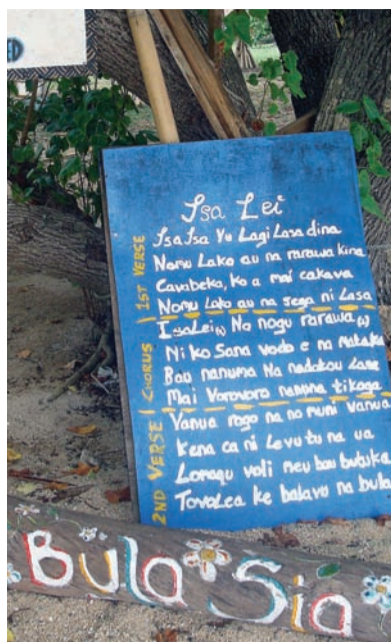 Isa Lei
1ST VERSE
Isa Isa Vu Lagi Lasa dina
Nomu Lako au na rarawa kina
Cavabeka, ko a mai cakava
Nomu Lako au na sega ni Lasa
CHORUS
Isa Lei(i) Na nogu rarawa(i)
Ni ko Sana vodo e na Mataka
Bau nanuma Na nodatou
Mai Vorovoro nanuma tikoga
2ND VERSE
Vanua rogo na no muni vanua
Kena ca ni Levu tu na ua
Lomaqu voli meu bau butuka
Tovolea ke balavu na bula
Bula Sia